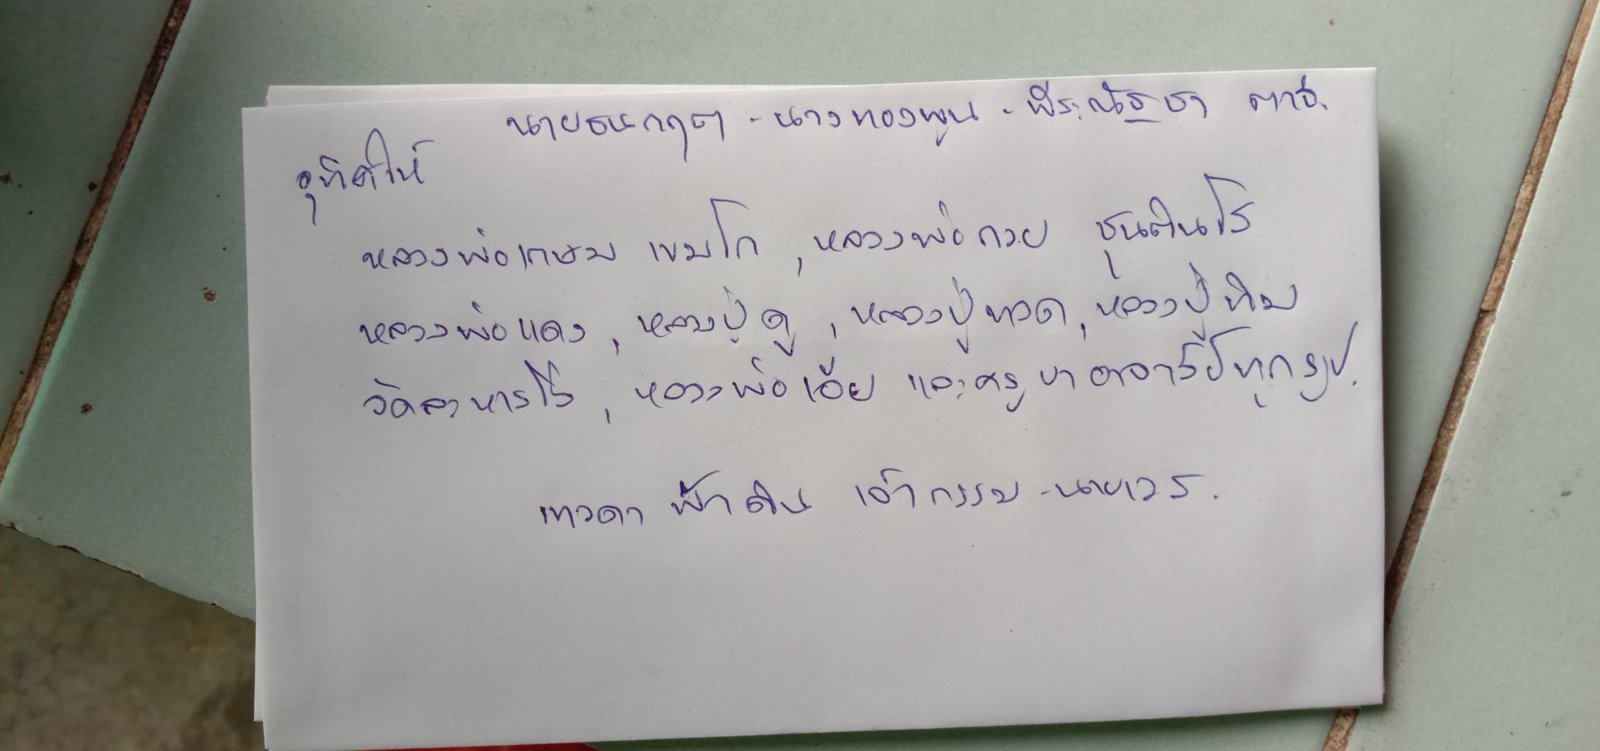 นายธนกฤต - นางทองพูน - พีระณัฐชา
อุทิศให้
หลวงพ่อเกษม เขมโก , หลวงพ่อกวย ชุตินฺธโร
หลวงพ่อแดง , หลวงปู่ดู่ , หลวงปู่ทวด , หลวงปู่ทิม
วัดละหารไร่ , หลวงพ่อเอีย และครูบาอาจารย์ทุกรูป.
เทวดา ฟ้าดิน เจ้ากรรม - นายเวร.